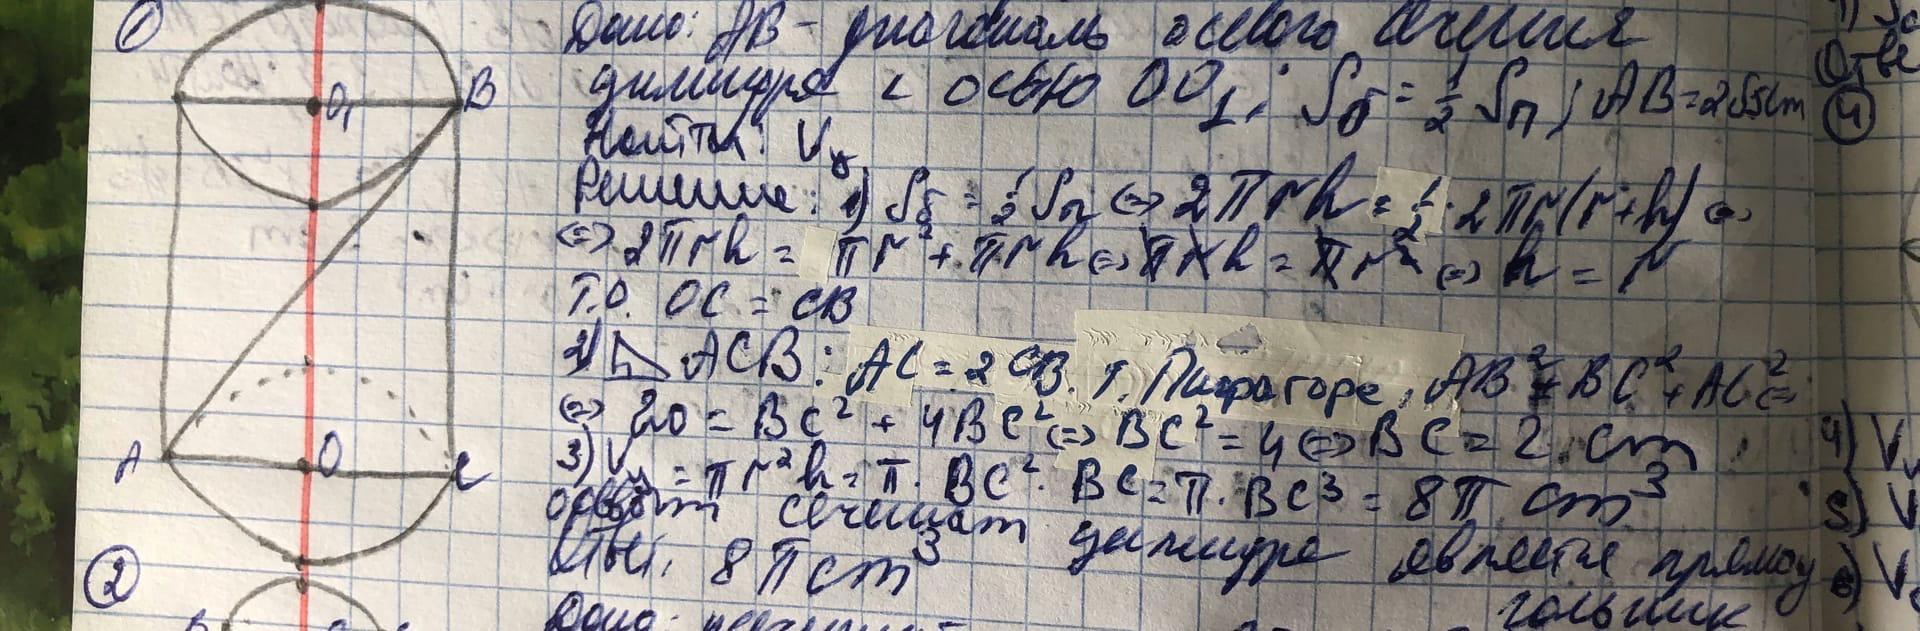 1
Дано: AB - диагональ осевого сечения
цилиндра с осью OO₁; Sб = 1/2 Sп; AB = 2√5 cm
Найти: Vц
Решение: 1) Sб = 1/2 Sп ⇔ 2πrh = 1/2 · 2πr(r+h) ⇔
⇔ 2πrh = πr² + πrh ⇔ πrh = πr² ⇔ h = r
Т.О. OC = CB
2) ACB: AC = 2CB. т. Пифагора, AB² = BC² + AC² ⇔
⇔ 20 = BC² + 4BC² ⇔ BC² = 4 ⇔ BC = 2 cm
3) Vц = πr²h = π · BC² · BC = π · BC³ = 8π cm³
осевым сечением цилиндра является прямоу
гольник
Ответ: 8π cm³
O₁
B
A
O
C
2
Дано:
Отве
4
4) V
5) V
6) V